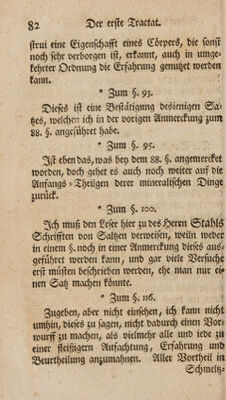 82 Der erste Tractat.
strui eine Eigenschafft eines Cörpers, die sonst
noch sehr verborgen ist, erkannt, auch in umge-
kehrter Ordnung die Erfahrung genutzet werden
kann.
* Zum §. 93.
Dieses ist eine Bestätigung desienigen Sa-
tzes, welchen ich in der vorigen Anmerckung zum
88. §. angeführet habe.
* Zum §. 95.
Ist eben das, was bey dem 88. §. angemercket
worden, doch gehet es auch noch weiter auf die
Anfangs-Theilgen derer mineralischen Dinge
zurück.
* Zum §. 100.
Ich muß den Leser hier zu des Herrn Stahls
Schrifften von Saltzen verweisen, weiln weder
in einem §. noch in einer Anmerckung dieses aus-
geführet werden kann, und gar viele Versuche
erst müsten beschrieben werden, ehe man nur ei-
nen Satz machen könnte.
* Zum §. 116.
Zugeben, aber nicht einsehen, ich kann nicht
umhin, dieses zu sagen, nicht dadurch einen Vor-
wurff zu machen, als vielmehr alle und iede zu
einer fleißigern Aufachtung, Erfahrung und
Beurtheilung anzumahnen. Aller Vortheil in
Schmeltz-